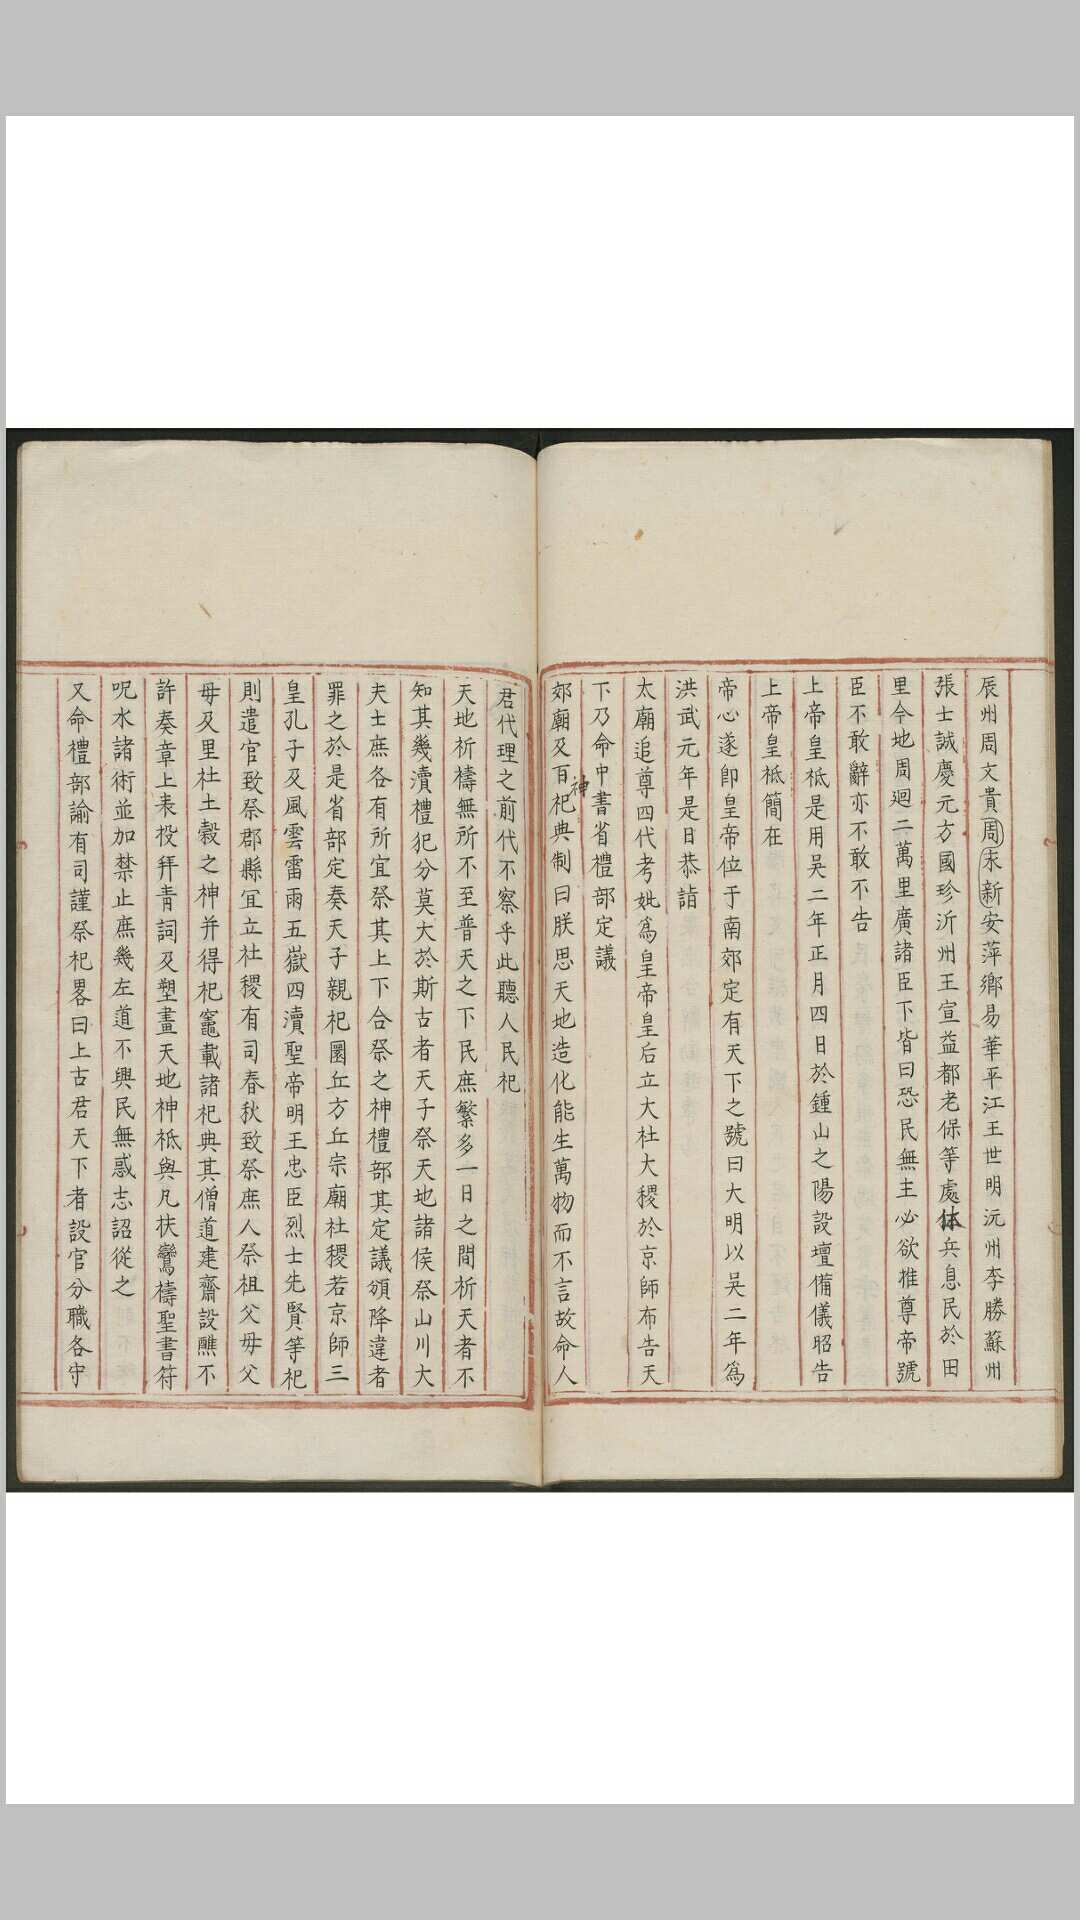 辰州周文貴周汞新安萍鄉易華平江王世明沅州李勝蘇州
張士誠慶元方國珍沂州王宣益都老保等處休兵息民於田
里今地周廻二萬里廣諸臣下皆曰恐民無主必欲推尊帝號
臣不敢辭亦不敢不告
上帝皇祇是用吳二年正月四日於鍾山之陽設壇備儀昭告
上帝皇祇簡在
帝心遂卽皇帝位于南郊定有天下之號曰大明以吳二年爲
洪武元年是日恭詣
太廟追尊四代考妣爲皇帝皇后立大社大稷於京師布告天
下乃命中書省禮部定議
郊廟及百神祀典制曰朕思天地造化能生萬物而不言故命人
君代理之前代不察乎此聽人民祀
天地祈禱無所不至普天之下民庶繁多一日之間祈天者不
知其幾瀆禮犯分莫大於斯古者天子祭天地諸侯祭山川大
夫士庶各有所宜祭其上下合祭之神禮部其定議頒降違者
罪之於是省部定奏天子親祀圜丘方丘宗廟社稷若京師三
皇孔子及風雲雷雨五嶽四瀆聖帝明王忠臣烈士先賢等祀
則遣官致祭郡縣冝立社稷有司春秋致祭庶人祭祖父母父
母及里社土穀之神并得祀竈載諸祀典其僧道建齋設醮不
許奏章上表投拜青詞及塑畫天地神祇與凡扶鸞禱聖書符
呪水諸術並加禁止庶幾左道不興民無惑志詔從之
又命禮部諭有司謹祭祀畧曰上古君天下者設官分職各守